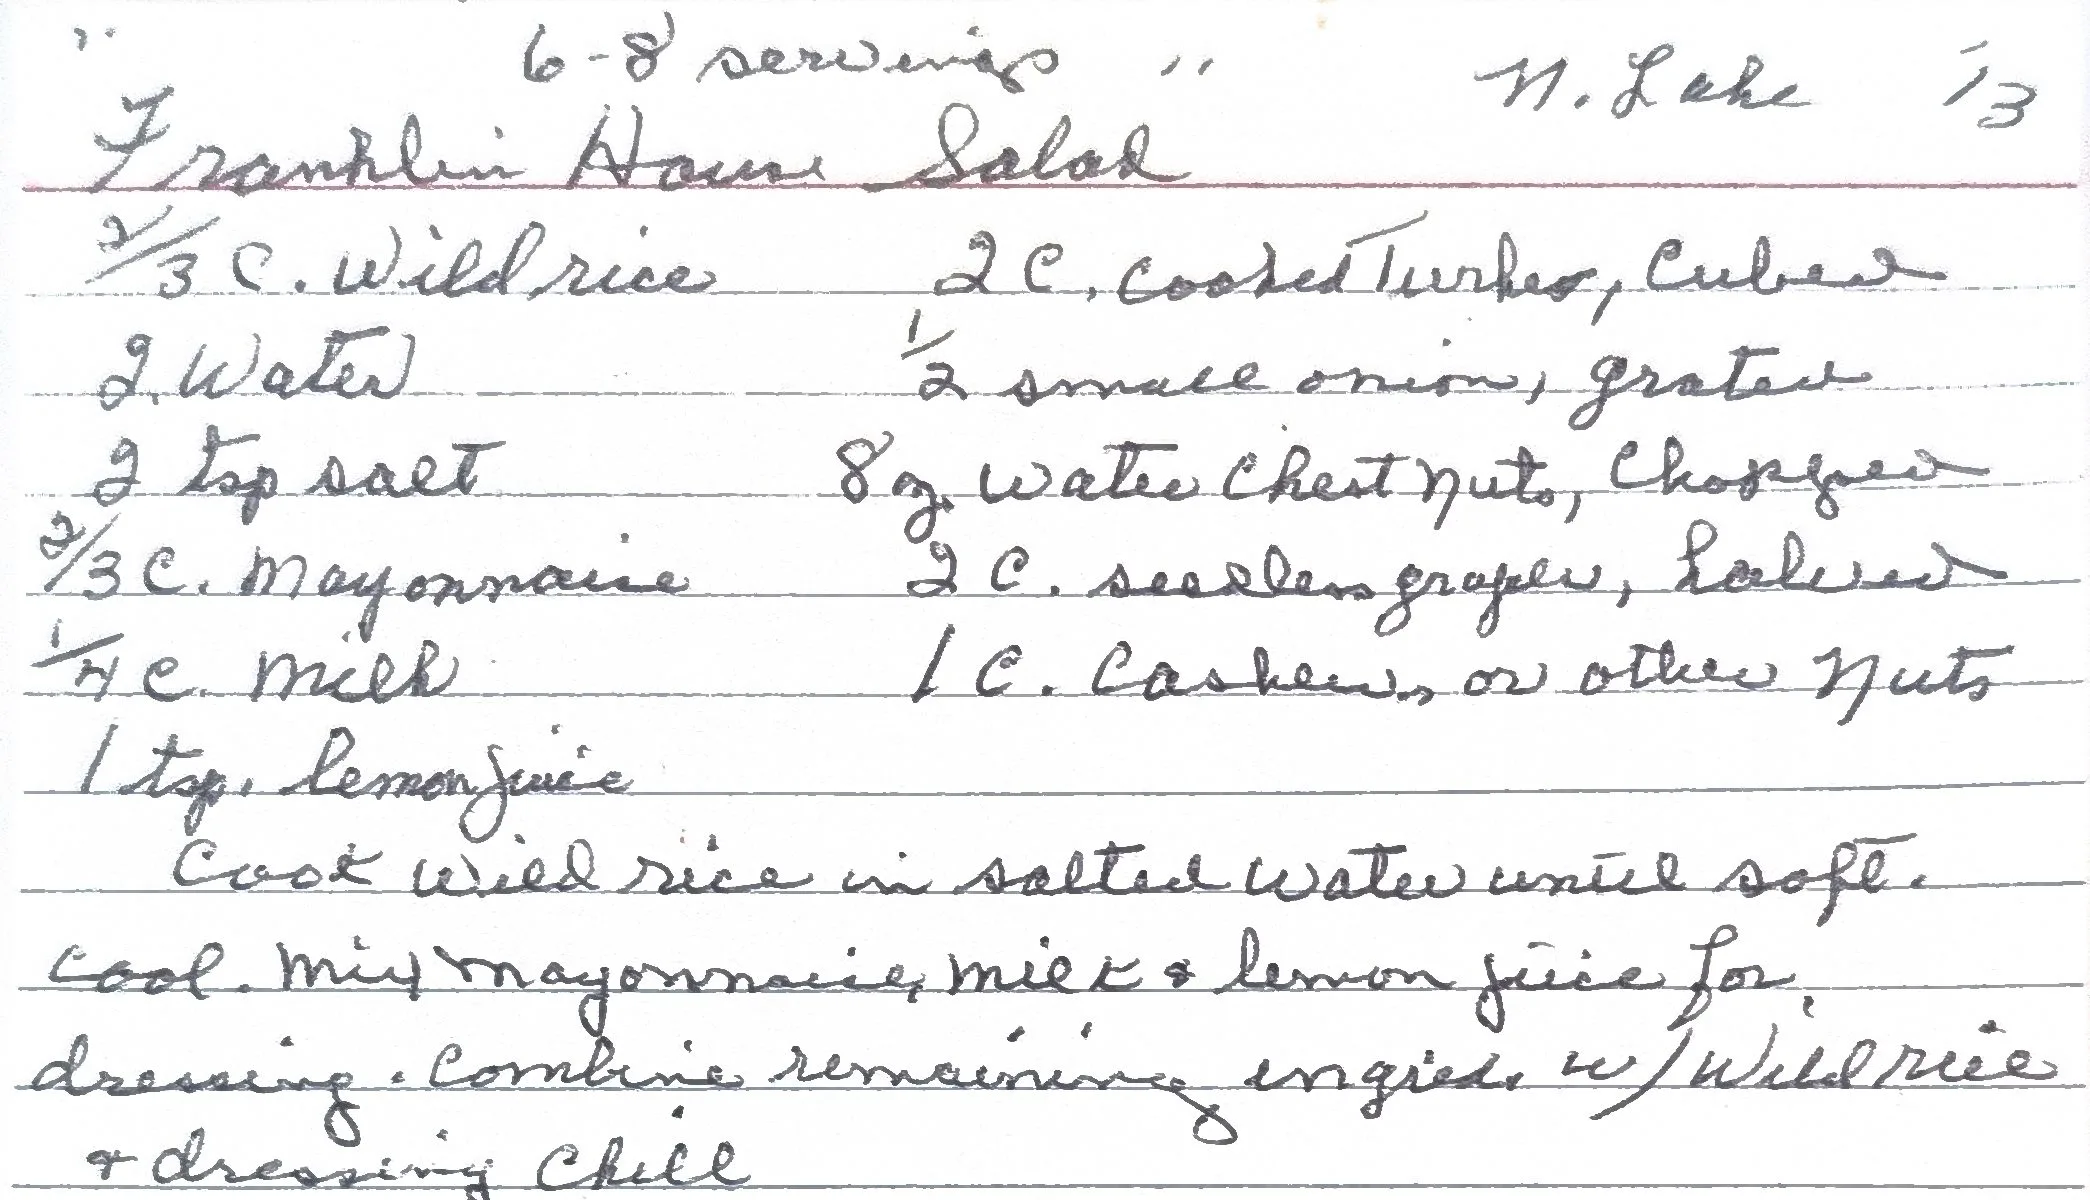 " 6-8 servings " N. Lake 1/3
Franklin House Salad
2/3 C. Wild rice 2 C. cooked Turkey, Cubed
2. Water 1/2 small onion, grated
2 tsp salt 8 oz. water Chest Nuts, Chopped
2/3 C. Mayonnaise 2 C. seedless grapes, halved
1/4 C. Milk 1 C. Cashews, or other Nuts
1 tsp. lemon juice
Cook wild rice in salted water until soft.
Cool. Mix mayonnaise, milk & lemon juice for
dressing. Combine remaining ingred. w/ Wild rice
& dressing Chill